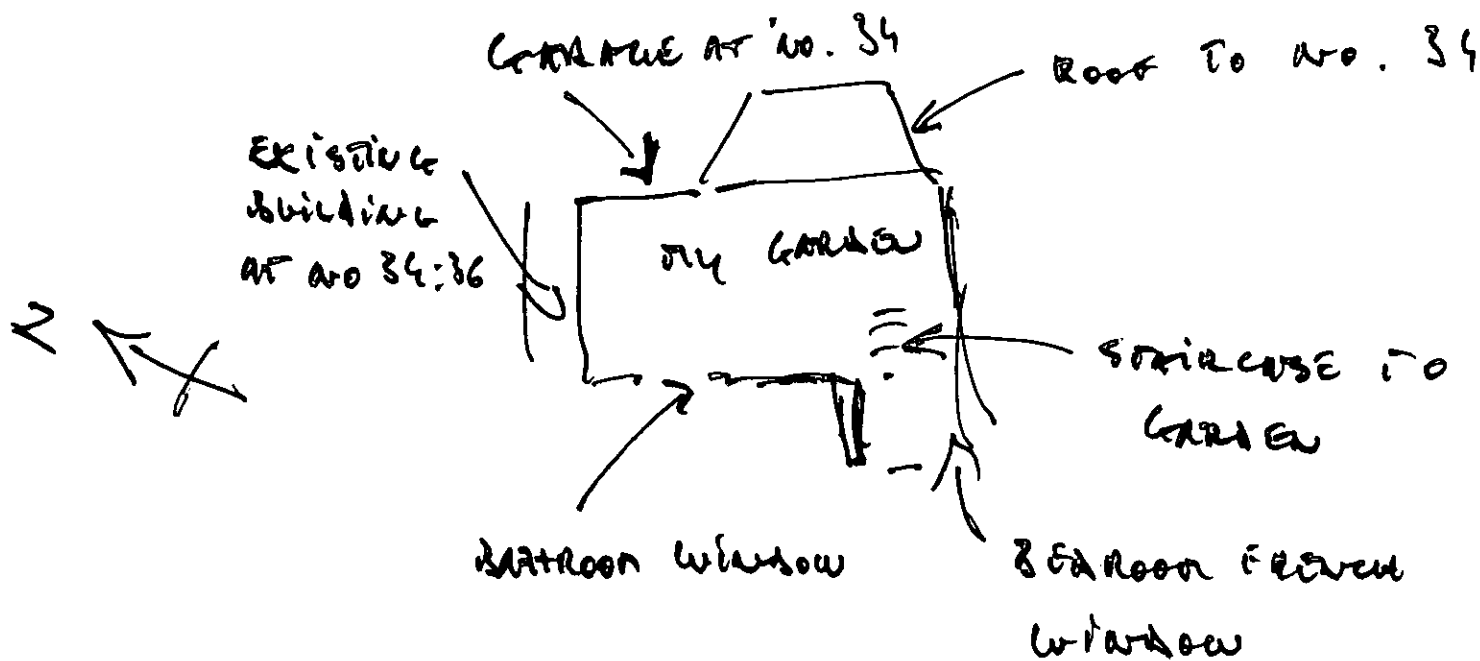 GARAGE AT NO. 34
ROOF TO NO. 34
EXISTING
BUILDING
AT NO 34:36
MY GARDEN
N
STAIRCASE TO
GARDEN
BATROOM WINDOW
BEDROOM FRENCH
WINDOW